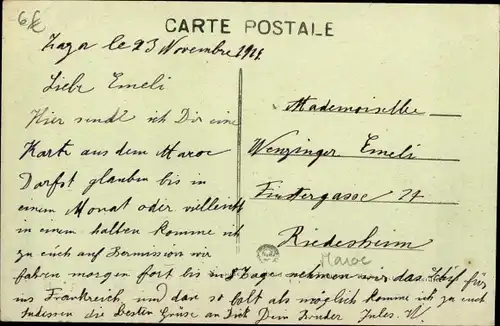 6f
CARTE POSTALE
Zaza le 23 Novembre
Liebe Emeli
Hier sendt ich Dir eine
Karte aus dem Maroc
Darfst glauben bis in
einem Monat oder vielleicht
in einem halben komme ich
zu euch auf Permission wir
fahren morgen fort bis in 8 Tage nehmen wir das Schif für
ins Frankreich, und dar so balt als möglich komme ich zu euch
Indessen die besten Grüse an Dich Dein Bruder Jules. W.
Mademoiselle
Wenzinger Emeli
Finstergasse
Riedesheim
Maroc